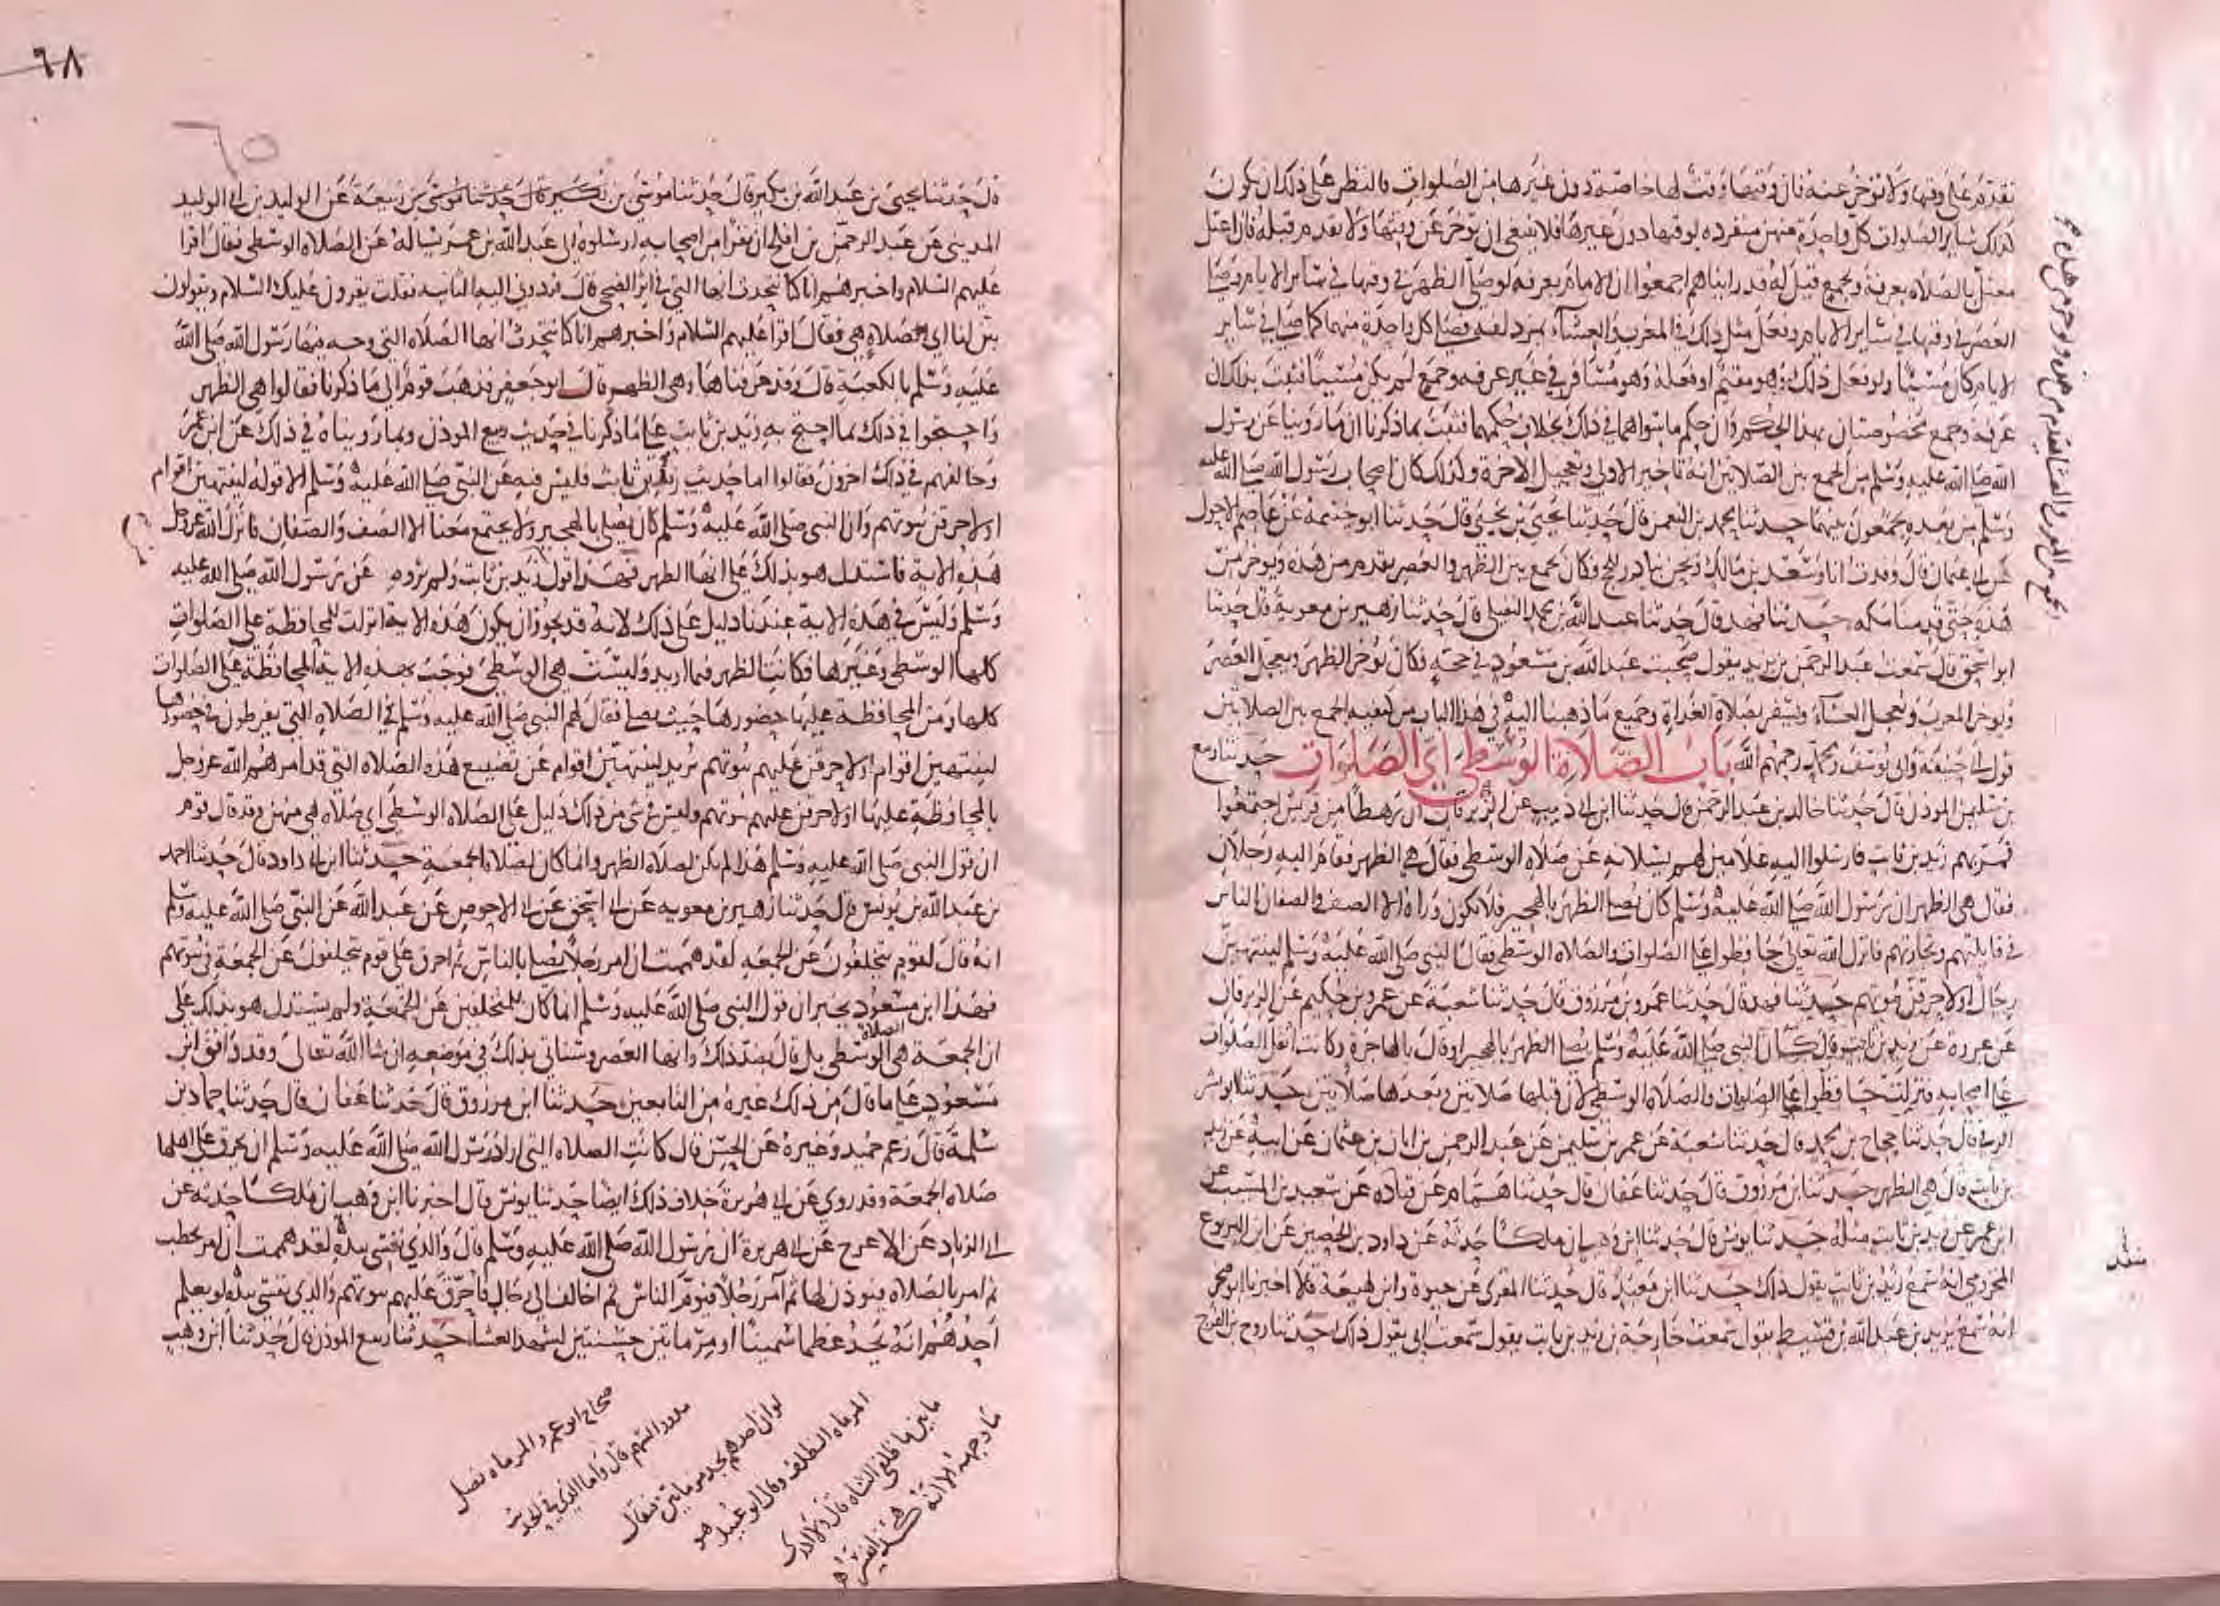 تقدم على وقتها ولا تؤخر عنه فان وقتها وقت لها خاصة دون غيرها من الصلوات فالنظر على ذلك ان يكون
كذلك سائر الصلوات كل واحدة منهن منفرده لوقتها دون غيرها فلا ينبغي ان تؤخر عن وقتها ولا تقدم قبله فان اعتل
معتل بالصلاه بعرفة وبجمع قيل له قد رايناهم اجمعوا ان الامام بعرفه لو صلى الظهر في وقتها في سائر الايام وصلى
العصر في وقتها في سائر الايام وفعل مثل ذلك في المغرب والعشاء بمزدلفه فصلى كل واحدة منهما كما صلى في سائر
الايام كان مسيئا ولو فعل ذلك وهو مقيم او فعله وهو مسافر في غير عرفه وجمع لم يكن مسيئا فثبت بذلك ان
عرفة وجمع مخصوصتان بهذا الحكم وان حكم ما سواهما في ذلك بخلاف حكمهما فثبت بما ذكرنا ان ما روينا عن رسول
الله صلى الله عليه وسلم من الجمع بين الصلاتين انه تاخير الاولى وتعجيل الاخرة وكذلك كان اصحاب رسول الله صلى الله عليه
وسلم من بعده يجمعون بينهما حدثنا محمد بن النعمن قال حدثنا يحيى بن يحيى قال حدثنا ابو خيثمة عن عاصم الاحول
عن ابي عثمان قال وفدت انا وسعد بن مالك ونحن نبادر للحج وكان نجمع بين الظهر والعصر يقدم من هذه ويوخر من
هذه حتى قدمنا مكه حدثنا فهد قال حدثنا عبد الله بن محمد النفيلي قال حدثنا زهير بن معوية قال حدثنا
ابو اسحق قال سمعت عبد الرحمن بن يزيد يقول صحبت عبد الله بن مسعود في حجة فكان يؤخر الظهر ويعجل العصر
ويوخر المغرب ويعجل العشاء ويسفر بصلاة الغداة وجميع ما ذهبنا اليه في هذا الباب من كيفيه الجمع بين الصلاتين
قول ابي حنيفة وابي يوسف ومحمد رحمهم الله باب الصلاة الوسطى اي الصلوات حدثنا ربيع
بن سليمن الموذن قال حدثنا خالد بن عبد الرحمن قال حدثنا ابن ابي ذيب عن الزبرقان ان رهطا من قريش اجتمعوا
فمر بهم زيد بن ثابت فارسلوا اليه غلامين لهم يسئلانه عن صلاه الوسطى فقال هي الظهر فقام اليه رجلان
فقال هي الظهر ان رسول الله صلى الله عليه وسلم كان يصلي الظهر بالهجير فلا يكون وراه الا الصف والصفان الناس
في قايلتهم وتجارتهم فانزل الله تعالى حافظوا على الصلوات والصلاه الوسطى فقال النبي صلى الله عليه وسلم لينتهين
رجال او لاحرقن بيوتهم حدثنا فهد قال حدثنا عمرو بن مرزوق قال حدثنا شعبة عن عمرو بن حكيم عن الزبرقان
عن عروة عن زيد بن ثابت قال كان النبي صلى الله عليه وسلم يصلي الظهر بالهجير او قال بالهاجرة وكانت اثقل الصلوات
على اصحابه فنزلت حافظوا على الصلوات والصلاة الوسطى لان قبلها صلاتين وبعدها صلاتين حدثنا ابو بشر
الرقي قال حدثنا حجاج بن محمد قال حدثنا شعبة عن عمر بن سليمن عن عبد الرحمن بن ابان بن عثمان عن ابيه عن زيد
بن ثابت قال هي الظهر حدثنا ابن مرزوق قال حدثنا عفان قال حدثنا همام عن قتاده عن سعيد بن المسيب عن
ابن عمر عن زيد بن ثابت مثله حدثنا يونس قال حدثنا ابن وهب ان ملكا حدثه عن داود بن الحصين عن ابن اليربوع
المخزومي انه سمع زيد بن ثابت يقول ذلك حدثنا ابن معبد قال حدثنا المقري عن حيوة وابن لهيعة قالا اخبرنا ابو صخر
انه سمع يزيد بن عبد الله بن قسيط يقول سمعت خارجة بن زيد بن ثابت يقول سمعت ابي يقول ذلك حدثنا روح بن الفرج
٦٨
٦٥
قال حدثنا يحيى بن عبد الله بن بكير قال حدثنا موسى بن ربيعة عن الوليد بن ابي الوليد
المديني عن عبد الرحمن بن افلح ان نفرا من اصحابه ارسلوه الى عبد الله بن عمر يساله عن الصلاه الوسطى فقال اقرا
عليهم السلام واخبرهم انا كنا نتحدث انها التي في اثر الضحى قال فردوني اليه الثانيه فقلت يقرون عليك السلام ويقولون
بين لنا اي صلاة هي فقال اقرا عليهم السلام واخبرهم انا كنا نتحدث انها الصلاه التي وجه فيها رسول الله صلى الله
عليه وسلم بالكعبة قال وقد عرفناها وهي الظهر قال ابو جعفر فذهب قوم الى ما ذكرنا فقالوا هي الظهر
واحتجوا في ذلك بما احتج به زيد بن ثابت على ما ذكرنا في حديث ربيع الموذن وبما رويناه في ذلك عن ابن عمر
وخالفهم في ذلك اخرون فقالوا اما حديث زيد بن ثابت فليس فيه عن النبي صلى الله عليه وسلم الا قوله لينتهين اقوام
او لاحرقن بيوتهم وان النبي صلى الله عليه وسلم كان يصلي بالهجير ولا يجتمع معنا الا الصف والصفان فانزل الله عز وجل
هذه الاية فاستدل هو بذلك على انها الظهر فهذا قول زيد بن ثابت ولم يروه عن رسول الله صلى الله عليه
وسلم وليس في هذه الاية عندنا دليل على ذلك لانه قد يجوز ان يكون هذه الاية انزلت للمحافظة على الصلوات
كلها الوسطى وغيرها فكانت الظهر فيما اريد وليست هي الوسطى فوجبت بهذه الاية المحافظة على الصلوات
كلها ومن المحافظة عليها حضورها حيث تصلى فقال لهم النبي صلى الله عليه وسلم في الصلاه التي يفرطون في حضورها
لينتهين اقوام او لاحرقن عليهم بيوتهم يريد لينتهين اقوام عن تضييع هذه الصلاه التي قد امرهم الله عز وجل
بالمحافظة عليها او لاحرقن عليهم بيوتهم وليس في شي من ذلك دليل على الصلاه الوسطى اي صلاه هي منهن وقد قال قوم
ان قول النبي صلى الله عليه وسلم هذا لم يكن لصلاة الظهر وانما كان لصلاة الجمعة حدثنا ابن ابي داود قال حدثنا احمد
بن عبد الله بن يونس قال حدثنا زهير بن معويه عن ابي اسحق عن ابي الاحوص عن عبد الله عن النبي صلى الله عليه وسلم
انه قال لقوم يتخلفون عن الجمعه لقد هممت ان امر رجلا يصلي بالناس ثم احرق على قوم يتخلفون عن الجمعة في بيوتهم
فهذا ابن مسعود يخبر ان قول النبي صلى الله عليه وسلم انما كان للمتخلفين عن الجمعة ولم يستدل هو بذلك على
ان الجمعة هي الصلاة الوسطى بل قال بضد ذلك وانها العصر وسناتي بذلك في موضعه ان شا الله تعالى وقد وافق ابن
مسعود على ما قال من ذلك غيره من التابعين حدثنا ابن مرزوق قال حدثنا عفان قال حدثنا حماد بن
سلمة قال زعم حميد وغيره عن الحسن قال كانت الصلاه التي اراد رسول الله صلى الله عليه وسلم ان يحرق على اهلها
صلاه الجمعة وقد روي عن ابي هريرة خلاف ذلك ايضا حدثنا يونس قال اخبرنا ابن وهب ان ملكا حدثه عن
ابي الزناد عن الاعرج عن ابي هريرة ان رسول الله صلى الله عليه وسلم قال والذي نفسي بيده لقد هممت ان امر بحطب
ثم امر بالصلاه فيوذن لها ثم آمر رجلا فيوم الناس ثم اخالف الى رجال فاحرق عليهم بيوتهم والذي نفسي بيده لو يعلم
احدهم انه يجد عظما سمينا او مرماتين حسنتين لشهد العشا حدثنا ربيع الموذن قال حدثنا ابن وهب
المرماه الظلف وقال ابو عبيد هو
ما بين ظلفي الشاه قال ولا ادري
ما وجهه الا انه هكذا يفسر